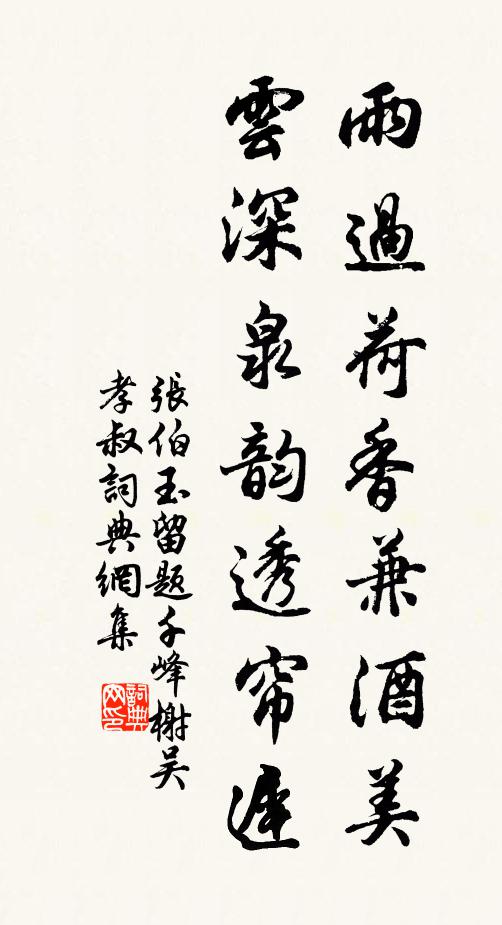 雨過荷香兼酒美
雲深泉韵透帘遲
張伯玉留題千峰榭吳
孝叔詞典網集
詞典
网印